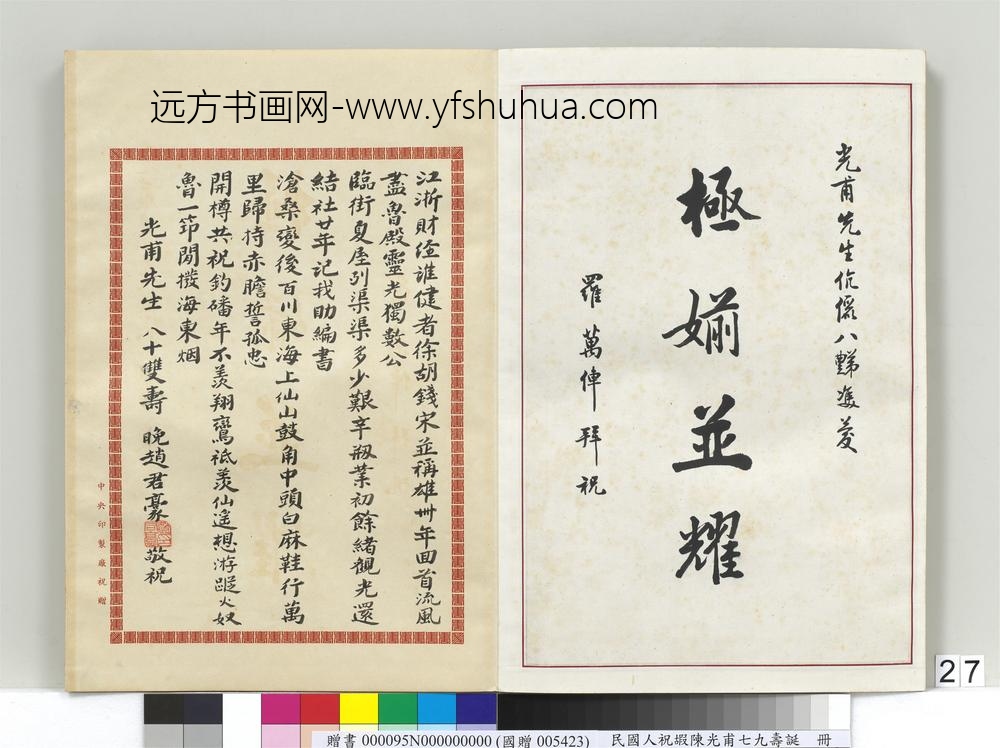 远方书画网-www.yfshuhua.com
光甫先生伉儷八豑雙慶
極婺並耀
羅萬俥拜祝
江浙財經誰健者徐胡錢宋並稱雄卅年回首流風
盡魯殿靈光獨數公
臨街夏屋列渠渠多少艱辛剏業初餘緒觀光還
結社廿年記我助編書
滄桑變後百川東海上仙山鼓角中頭白麻鞋行萬
里歸持赤膽誓孤忠
開樽共祝釣磻年不羨翔鸞祇羨仙遙想游蹤火奴
魯一笻閒撥海東烟
光甫先生八十雙壽 晚趙君豪敬祝
中央印製廠祝贈
27
贈書 000095N000000000 (國贈 005423) 民國人祝嘏陳光甫七九壽誕 冊